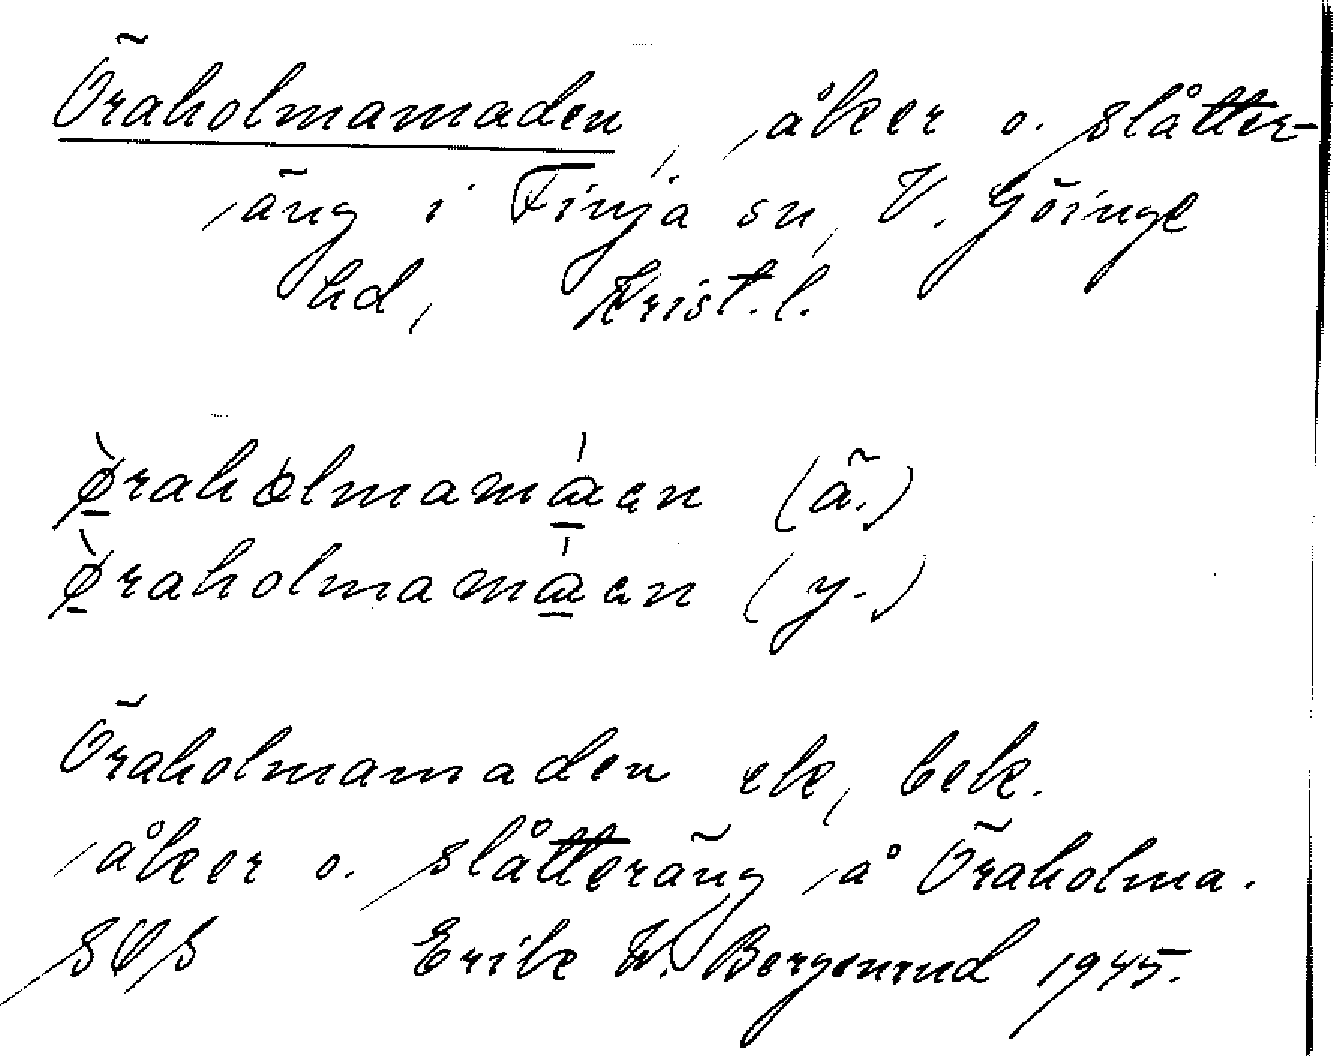 Öraholmamaden, åker o. slåtter-
äng i Finja sn, V. Göinge
hd, Krist. l.
ø̱̀raholmamá̱en (ä.)
ø̱̀raholmamá̱en (y.)
Öraholmamaden ek, bek.
åker o. slåtteräng å Öraholma.
SOS Erik W. Bergenrud 1945.